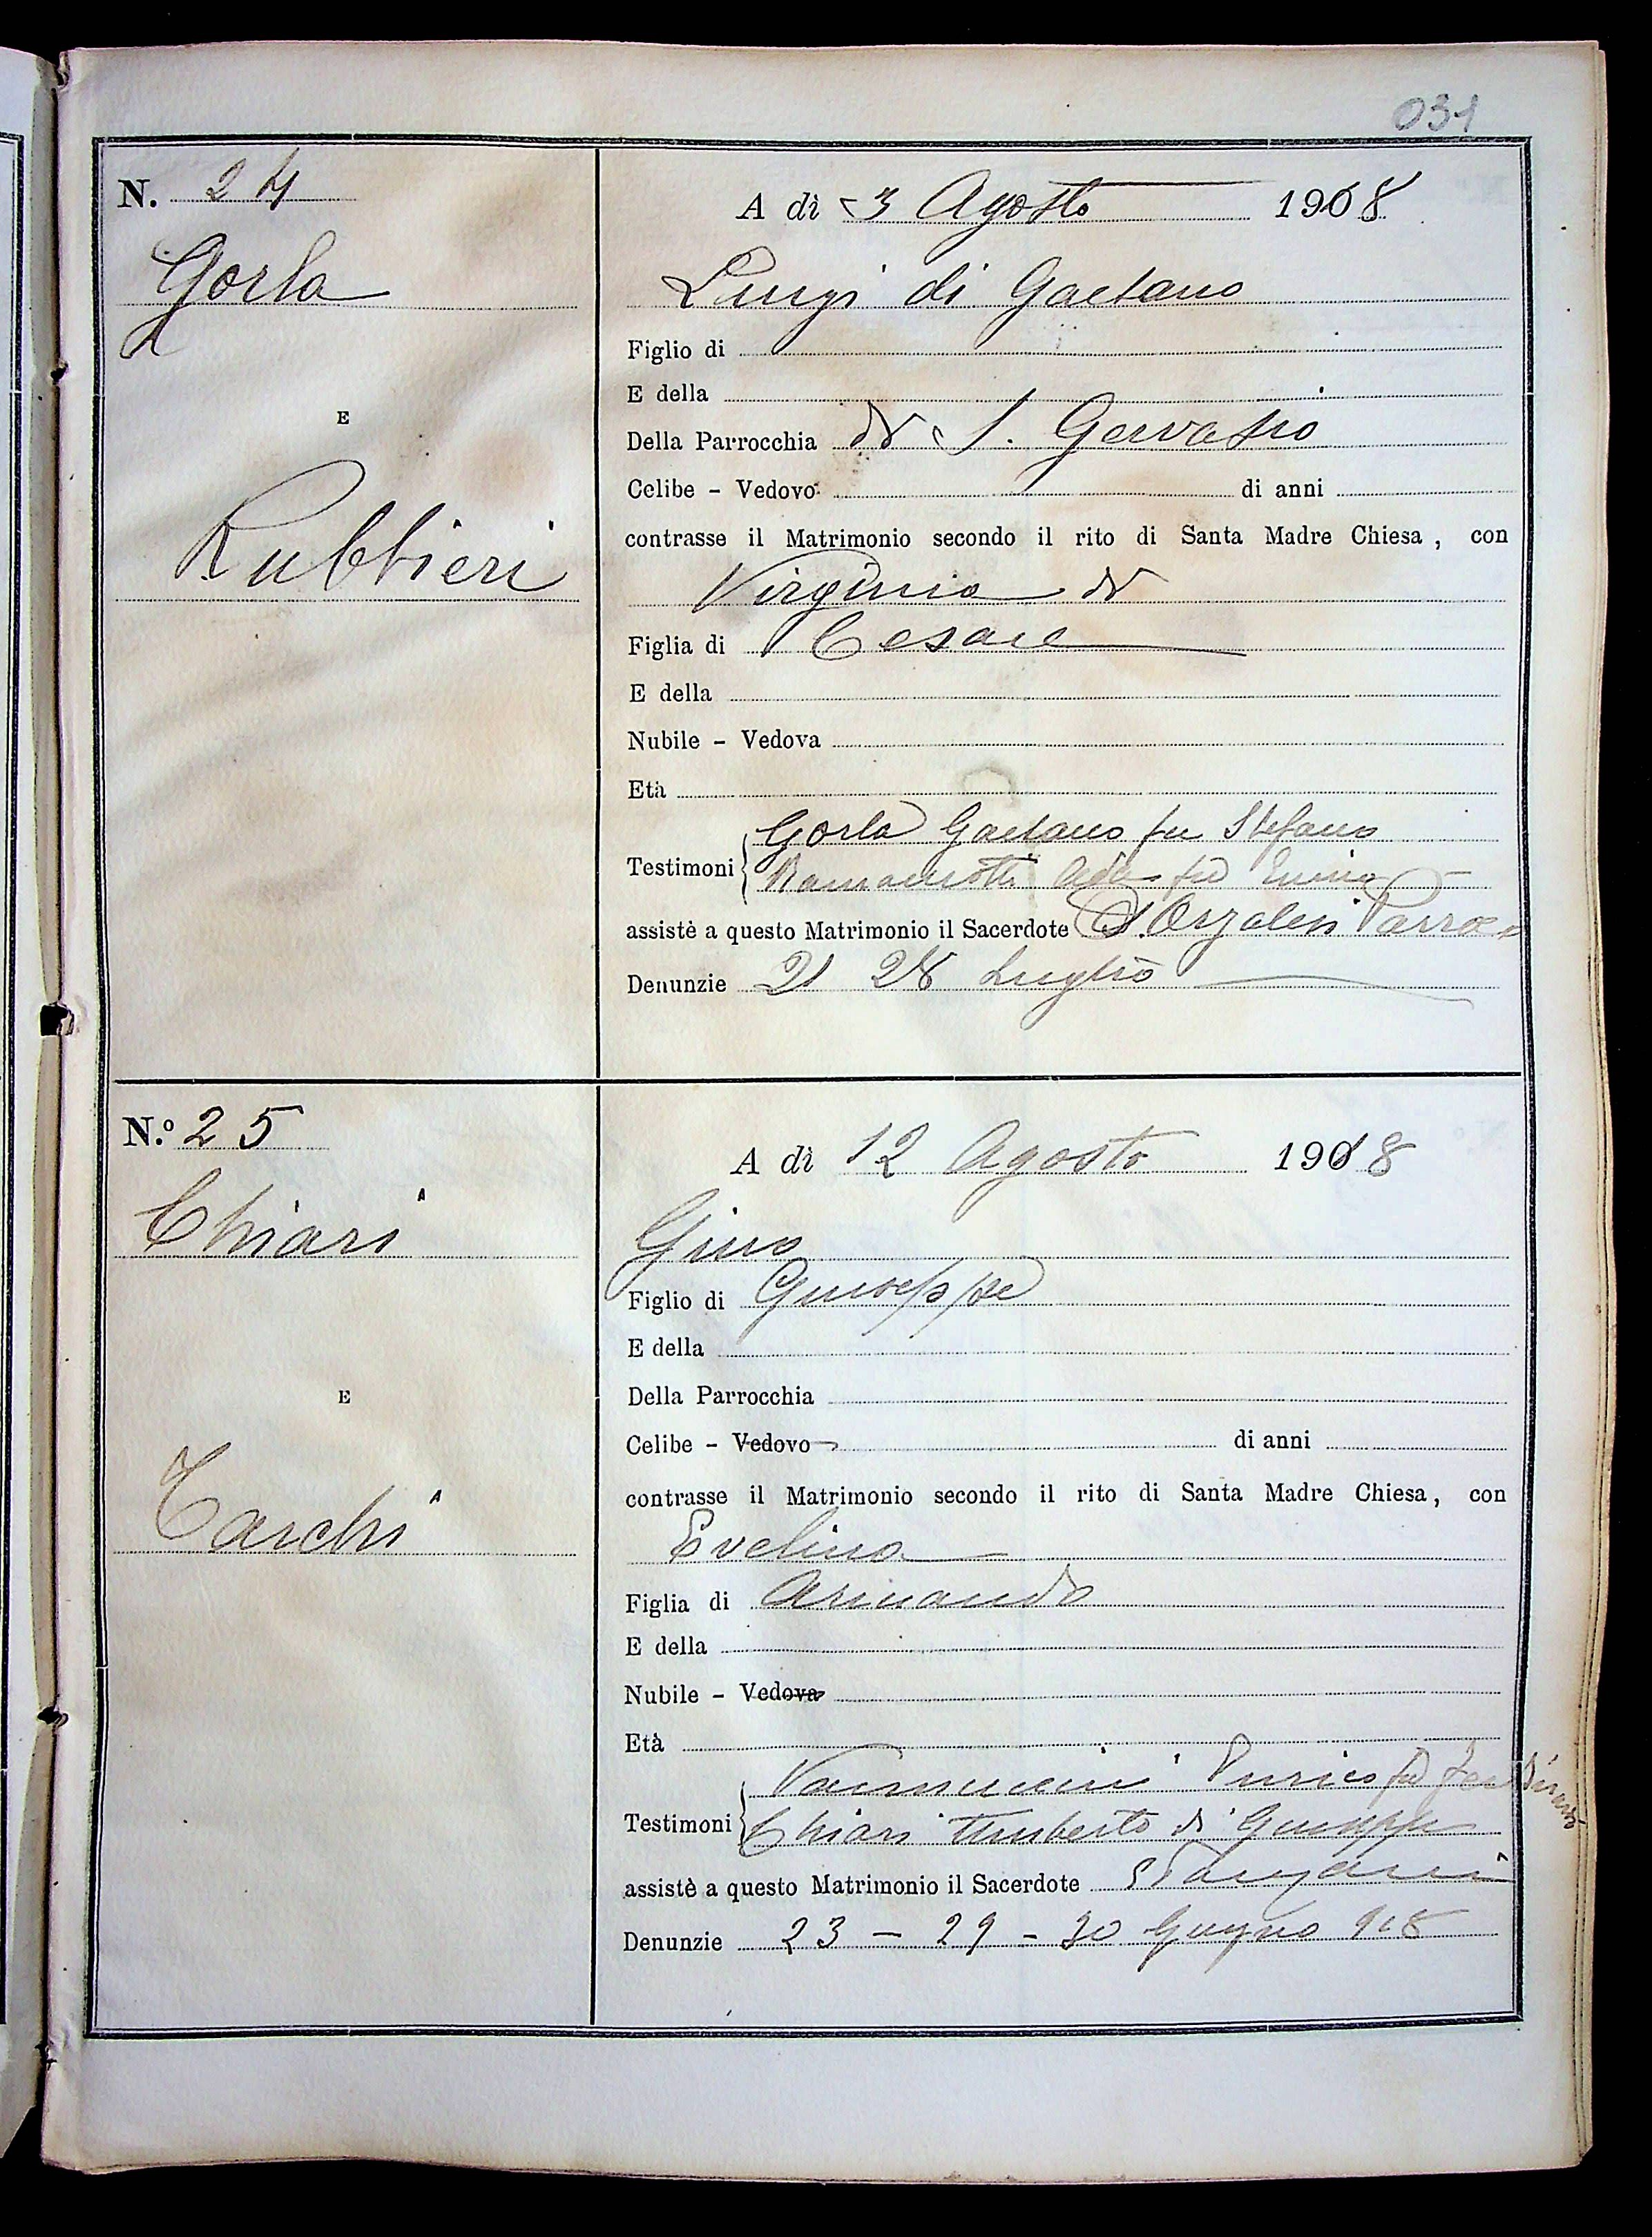 031
N. 24
A dì 3 Agosto 1918
Gorla
Luigi di Gaetano
Figlio di
E della
E
Della Parrocchia di S. Gervasio
Celibe - Vedovo di anni
contrasse il Matrimonio secondo il rito di Santa Madre Chiesa, con
Rubbieri
Virginia di
Figlia di Cesare
E della
Nubile - Vedova
Età
Gorla Gaetano fu Stefano
Testimoni fu
assistè a questo Matrimonio il Sacerdote Parroco
Denunzie 21 28 Luglio
N.º 25
A dì 12 Agosto 1918
Chiari
Gino
Figlio di Giuseppe
E della
E
Della Parrocchia
Celibe - Vedovo di anni
contrasse il Matrimonio secondo il rito di Santa Madre Chiesa, con
Tarchi
Evelina
Figlia di Armando
E della
Nubile - Vedova
Età
Vannuccini Enrico fu
Testimoni Chiari Umberto di Giuseppe
assistè a questo Matrimonio il Sacerdote
Denunzie 23 - 29 - 30 Giugno 918